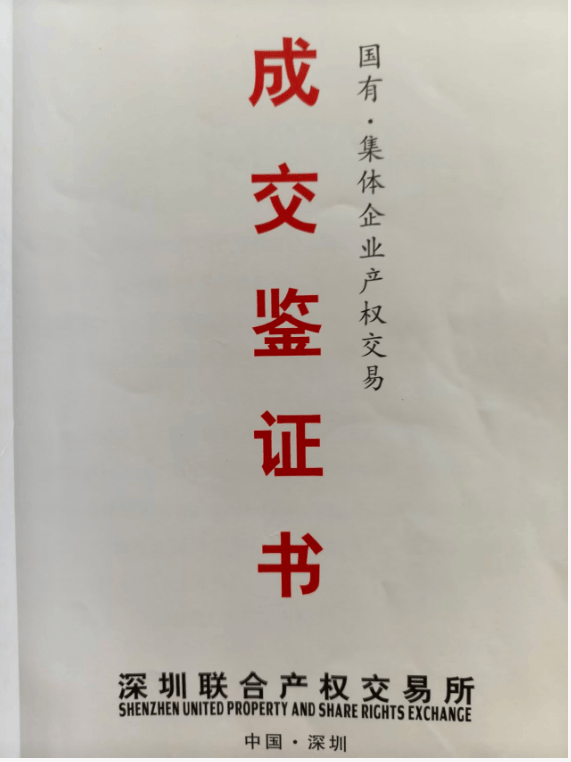 国有·集体企业产权交易
成交鉴证书
深圳联合产权交易所
SHENZHEN UNITED PROPERTY AND SHARE RIGHTS EXCHANGE
中国·深圳